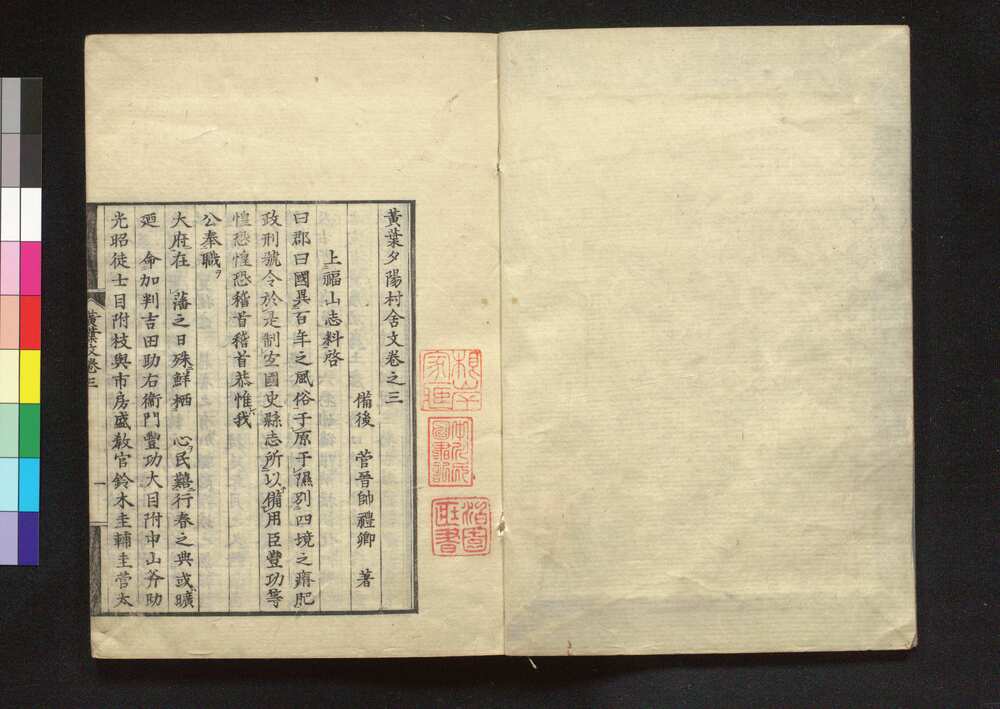 黃葉夕陽村舍文卷之三
備後 菅晉帥禮卿 著
上福山志料啓
曰郡曰國異百年之風俗于原于隰別四境之瘠肥
政刑號令於是制宜國史縣志所以備用臣豐功等
惶恐惶恐稽首稽首恭惟我
公奉職
大府在 藩之日殊鮮栖 心民囏行春之典或曠
廼 命加判吉田助右衞門豐功大目附中山斧助
光昭徒士目附枝與市房盛敎官鈴木圭輔圭菅太
黃葉文卷三
一
圖書記